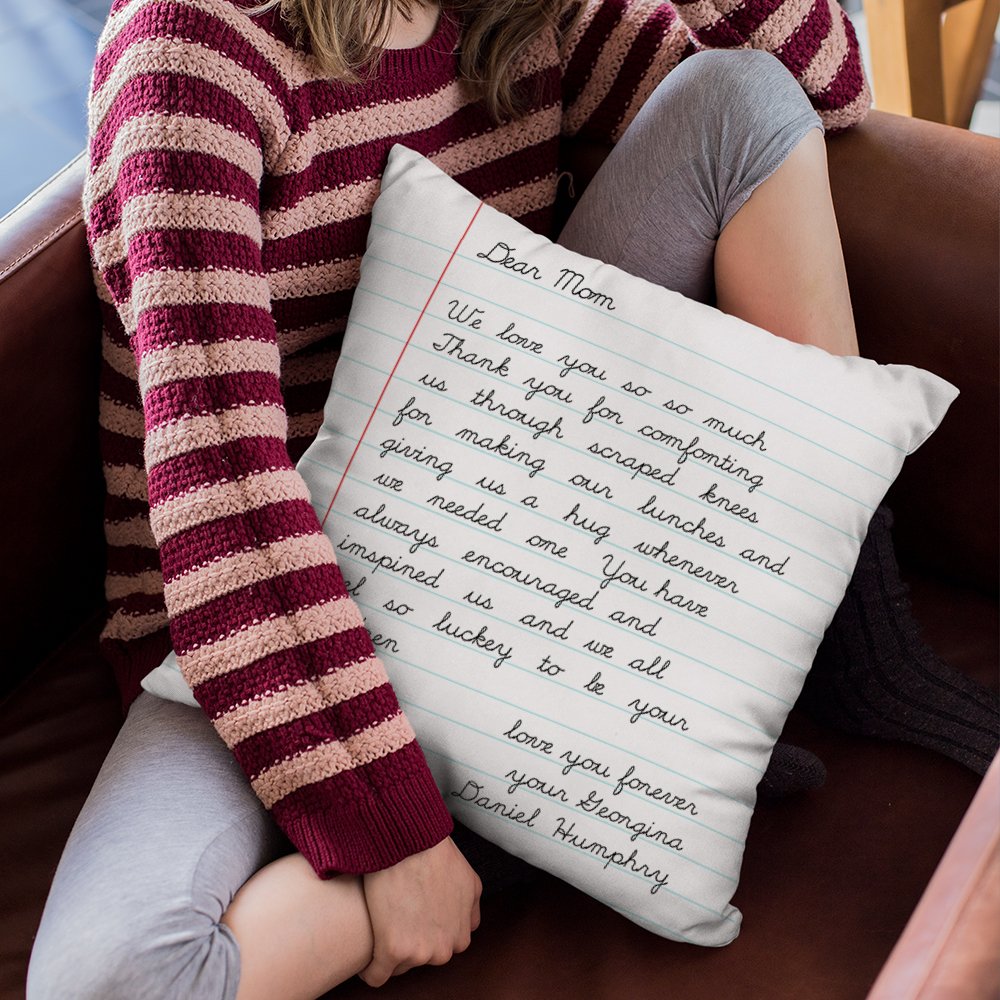 Dear Mom
We love you so so much
Thank you for comfonting
us through scraped knees
for making our lunches and
giving us a hug whenever
we needed one You have
always encouraged and
imspined us and we all
so luckey to be your
love you forever
your Georgina
Daniel Humphry